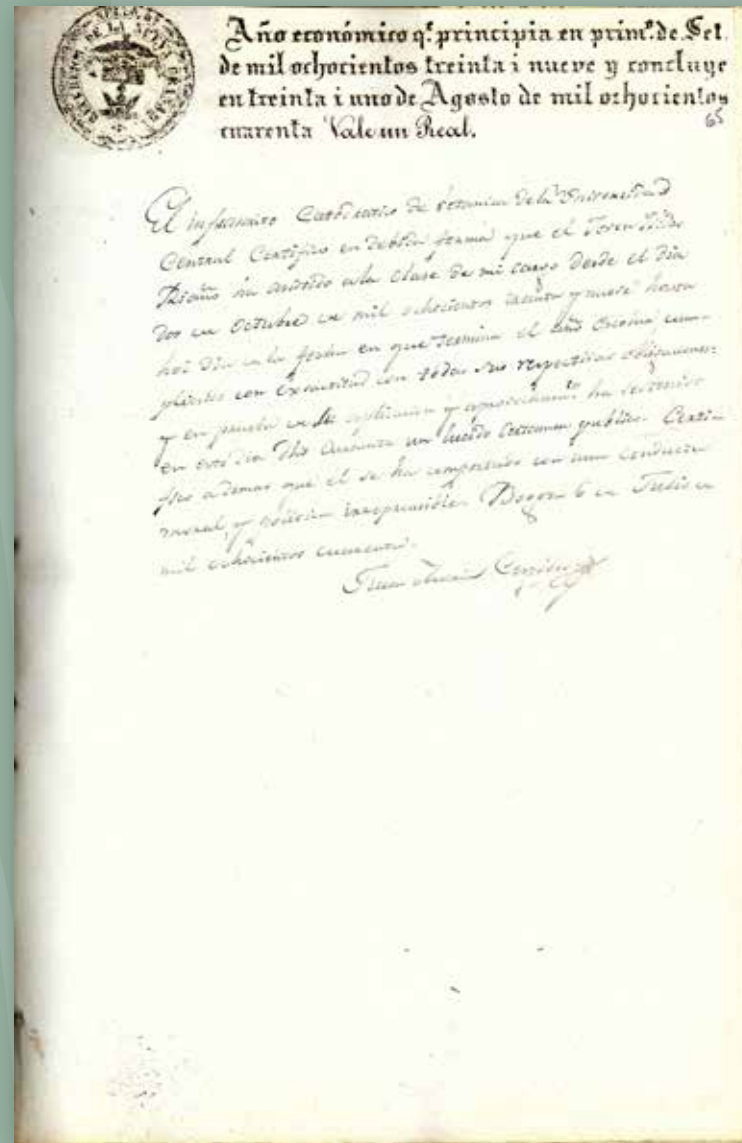 Año económico q.e principia en prim.o de Set.
de mil ochocientos treinta i nueve y concluye
en treinta i uno de Agosto de mil ochocientos
cuarenta Vale un Real.
65
El infrascrito Catedratico de botanica de la Universidad
Central Certifico en debida forma que el Joven
Riaño ha asistido a la clase de mi cargo desde el dia
dos de Octubre de mil ochocientos treinta y nueve hasta
hoi dia de la fecha en que termina el año Escolar, cum-
pliendo con exactitud con todas sus respectivas obligaciones:
y en prueba de su aplicacion y aprovechamto ha sostenido
en este dia un lucido Certamen publico. Certi-
fico ademas que el se ha comportado con una conducta
moral, y politica irreprensible. Bogota 6 de Julio de
mil ochocientos cuarenta.
Juan Maria